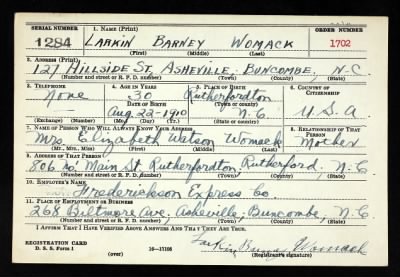 SERIAL NUMBER 1. NAME (Print) ORDER NUMBER
1284 LARKIN BARNEY WOMACK 1702
(First) (Middle) (Last)
2. ADDRESS (Print)
127 HILLSIDE ST. ASHEVILLE, BUNCOMBE, N.C
(Number and street or R. F. D. number) (Town) (County) (State)
3. TELEPHONE 4. AGE IN YEARS 5. PLACE OF BIRTH 6. COUNTRY OF CITIZENSHIP
None 30 Rutherfordton
DATE OF BIRTH (Town or county)
Aug-22-1910 N.C. U.S.A
(Exchange) (Number) (Mo.) (Day) (Yr.) (State or country)
7. NAME OF PERSON WHO WILL ALWAYS KNOW YOUR ADDRESS 8. RELATIONSHIP OF THAT PERSON
Mrs Elizabeth Watson Womack Mother
(Mr., Mrs., Miss) (First) (Middle) (Last)
9. ADDRESS OF THAT PERSON
806 N. Main St Rutherfordton, Rutherford, N.C
(Number and street or R. F. D. number) (Town) (County) (State)
10. EMPLOYER'S NAME
Frederickson Express Co.
11. PLACE OF EMPLOYMENT OR BUSINESS
268 Biltmore Ave. Asheville, Buncombe, N.C.
(Number and street or R. F. D. number) (Town) (County) (State)
I AFFIRM THAT I HAVE VERIFIED ABOVE ANSWERS AND THAT THEY ARE TRUE.
REGISTRATION CARD
D. S. S. Form 1 16—17105 Larkin Barney Womack
(over) (Registrant's signature)